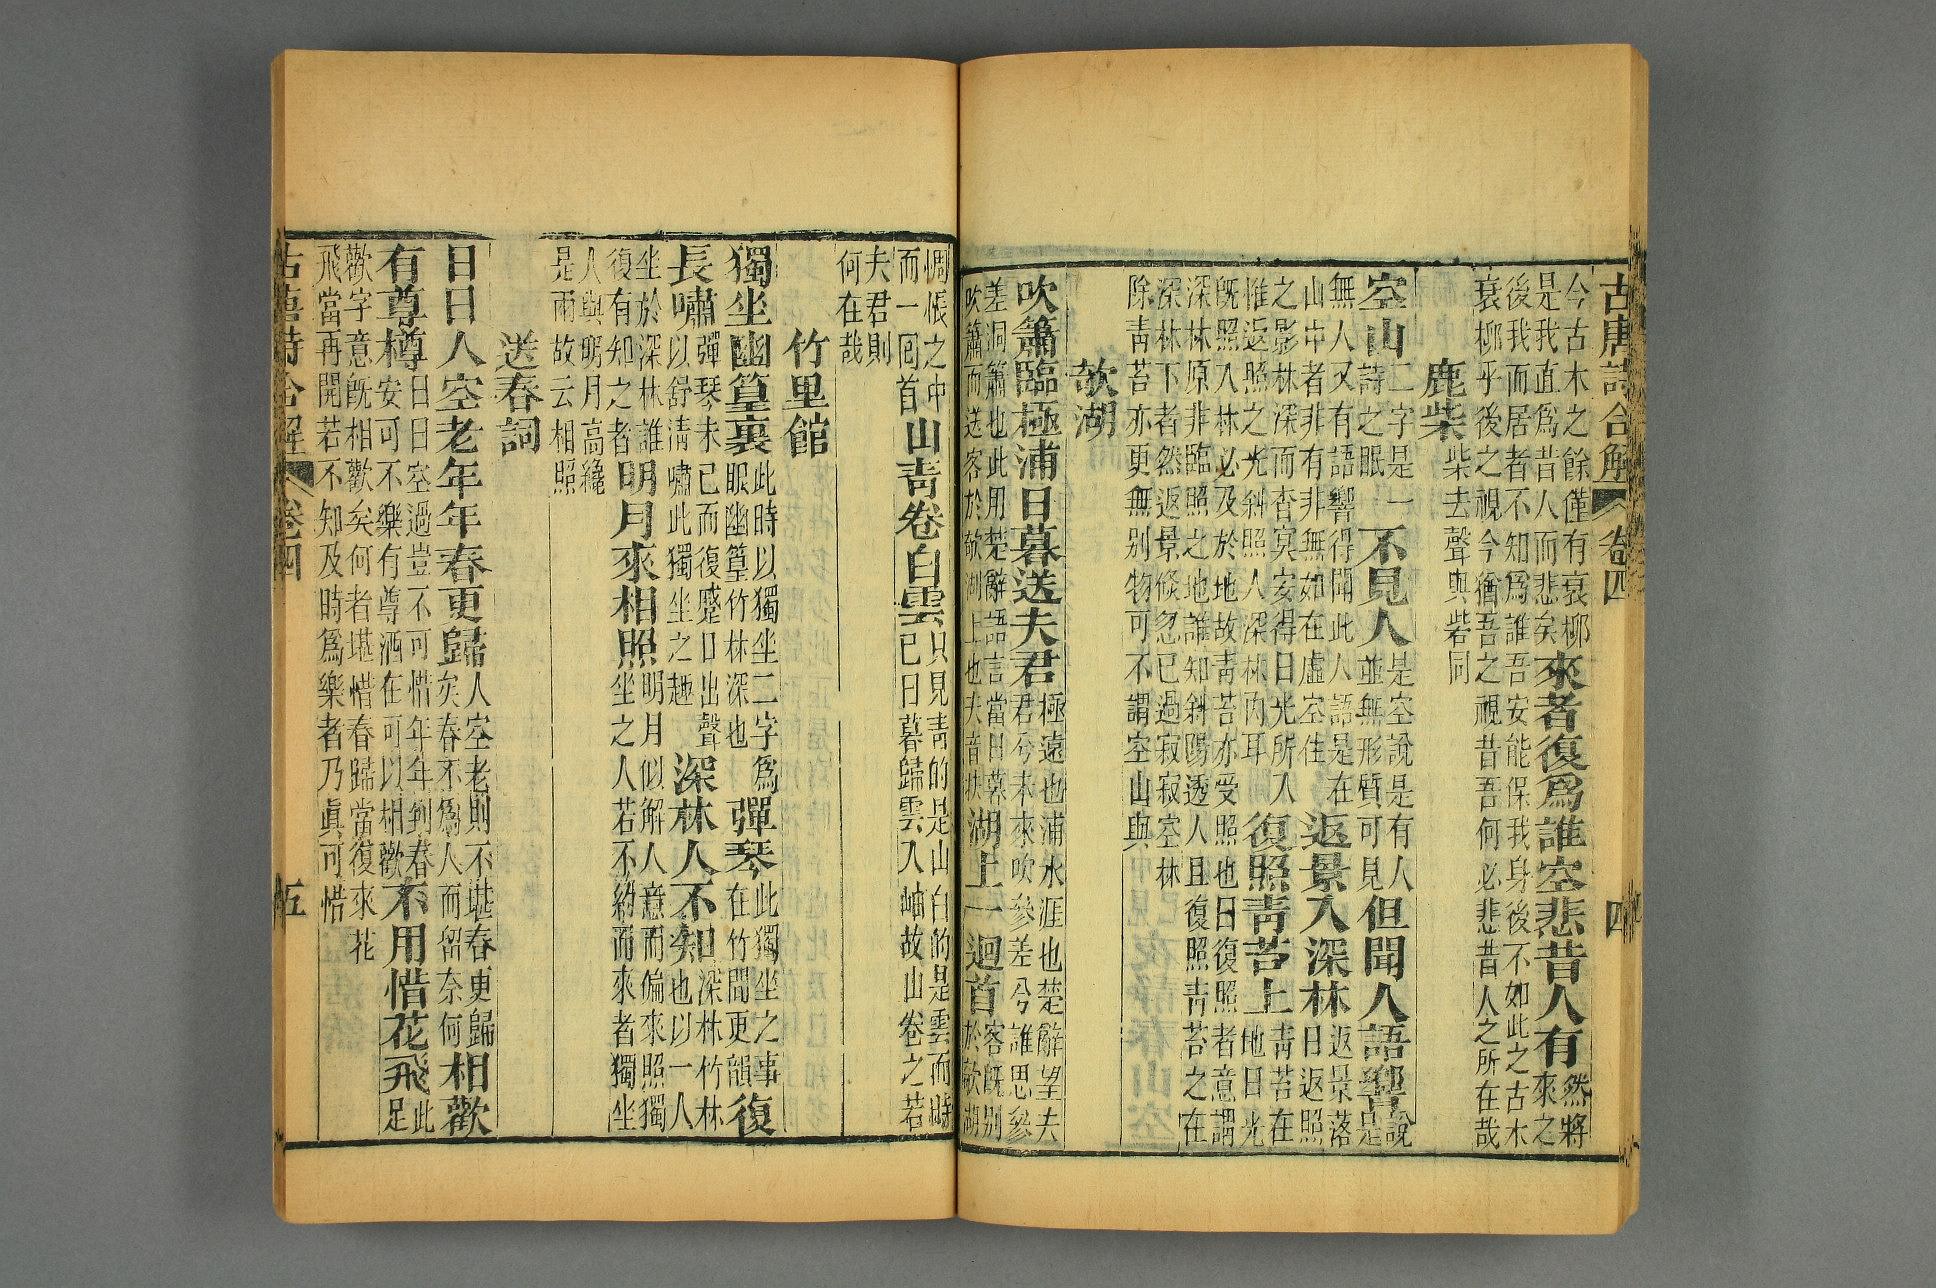 古唐詩合解 卷四 四
今古木之餘僅有衰柳
是我直爲昔人而悲矣
來者復爲誰空悲昔人有
然將
來之
後我而居者不知爲誰吾安能保我身後不如此之古木
衰柳乎後之視今猶吾之視昔吾何必悲昔人之所在哉
鹿柴 柴去聲與砦同
空山
二字是一
詩之眼
不見人
是空說是有人
並無形質可見
但聞人語響
說
是
無人又有語響得聞此人語是在
山中者非有非無如在虛空住
返景入深林
返景落
日返照
之影林深而杳冥安得日光所入
惟返照之光斜照人深林內耳
復照靑苔上
靑苔在
地日光
旣照入林必及於地故靑苔亦受照也曰復照者意謂
深林原非臨照之地誰知斜陽透人且復照靑苔之在
深林下者然返景倏忽已過寂寂空林
除靑苔亦更無別物可不謂空山與
欹湖
吹簫臨極浦日暮送夫君
極遠也浦水涯也楚辭望夫
君兮未來吹參差兮誰思參
差洞簫也此用楚辭語言當日暮
吹簫而送客於欹湖上也夫音扶
湖上一迴首
客旣別
於欹湖
惆悵之中
而一囘首
山靑卷白雲
只見靑的是山白的是雲而時
已日暮歸雲入岫故山卷之若
夫君則
何在哉
竹里館
獨坐幽篁裏
此時以獨坐二字爲
眼幽篁竹林深也
彈琴
此獨坐之事
在竹間更韻
復
長嘯
彈琴未已而復蹙口出聲
以舒淸嘯此獨坐之趣
深林人不知
深林竹林
也以一人
坐於深林誰
復有知之者
明月來相照
明月似解人意而偏來照獨
坐之人若不約而來者獨坐
人與明月高纔
是雨故云相照
送春詞
日日人空老年年春更歸
人空老則不堪春更歸
矣春不爲人而留奈何
相歡
有尊樽
日日空過豈不可惜年年到春
安可不樂有尊酒在可以相歡
不用惜花飛
此
足
歡字意旣相歡矣何者堪惜春歸當復來花
飛當再開若不知及時爲樂者乃眞可惜
古唐詩合解 卷四 五